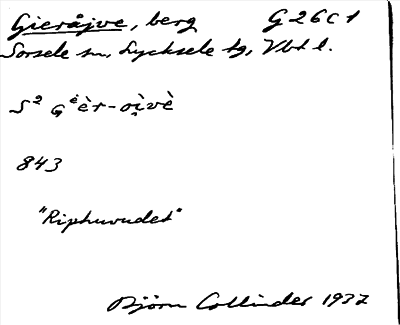 Gieråjve, berg G 26 C 1
Sorsele sn, Lycksele tg, Vbt l.
843
"Riphuvudet"
Björn Collinder 1937